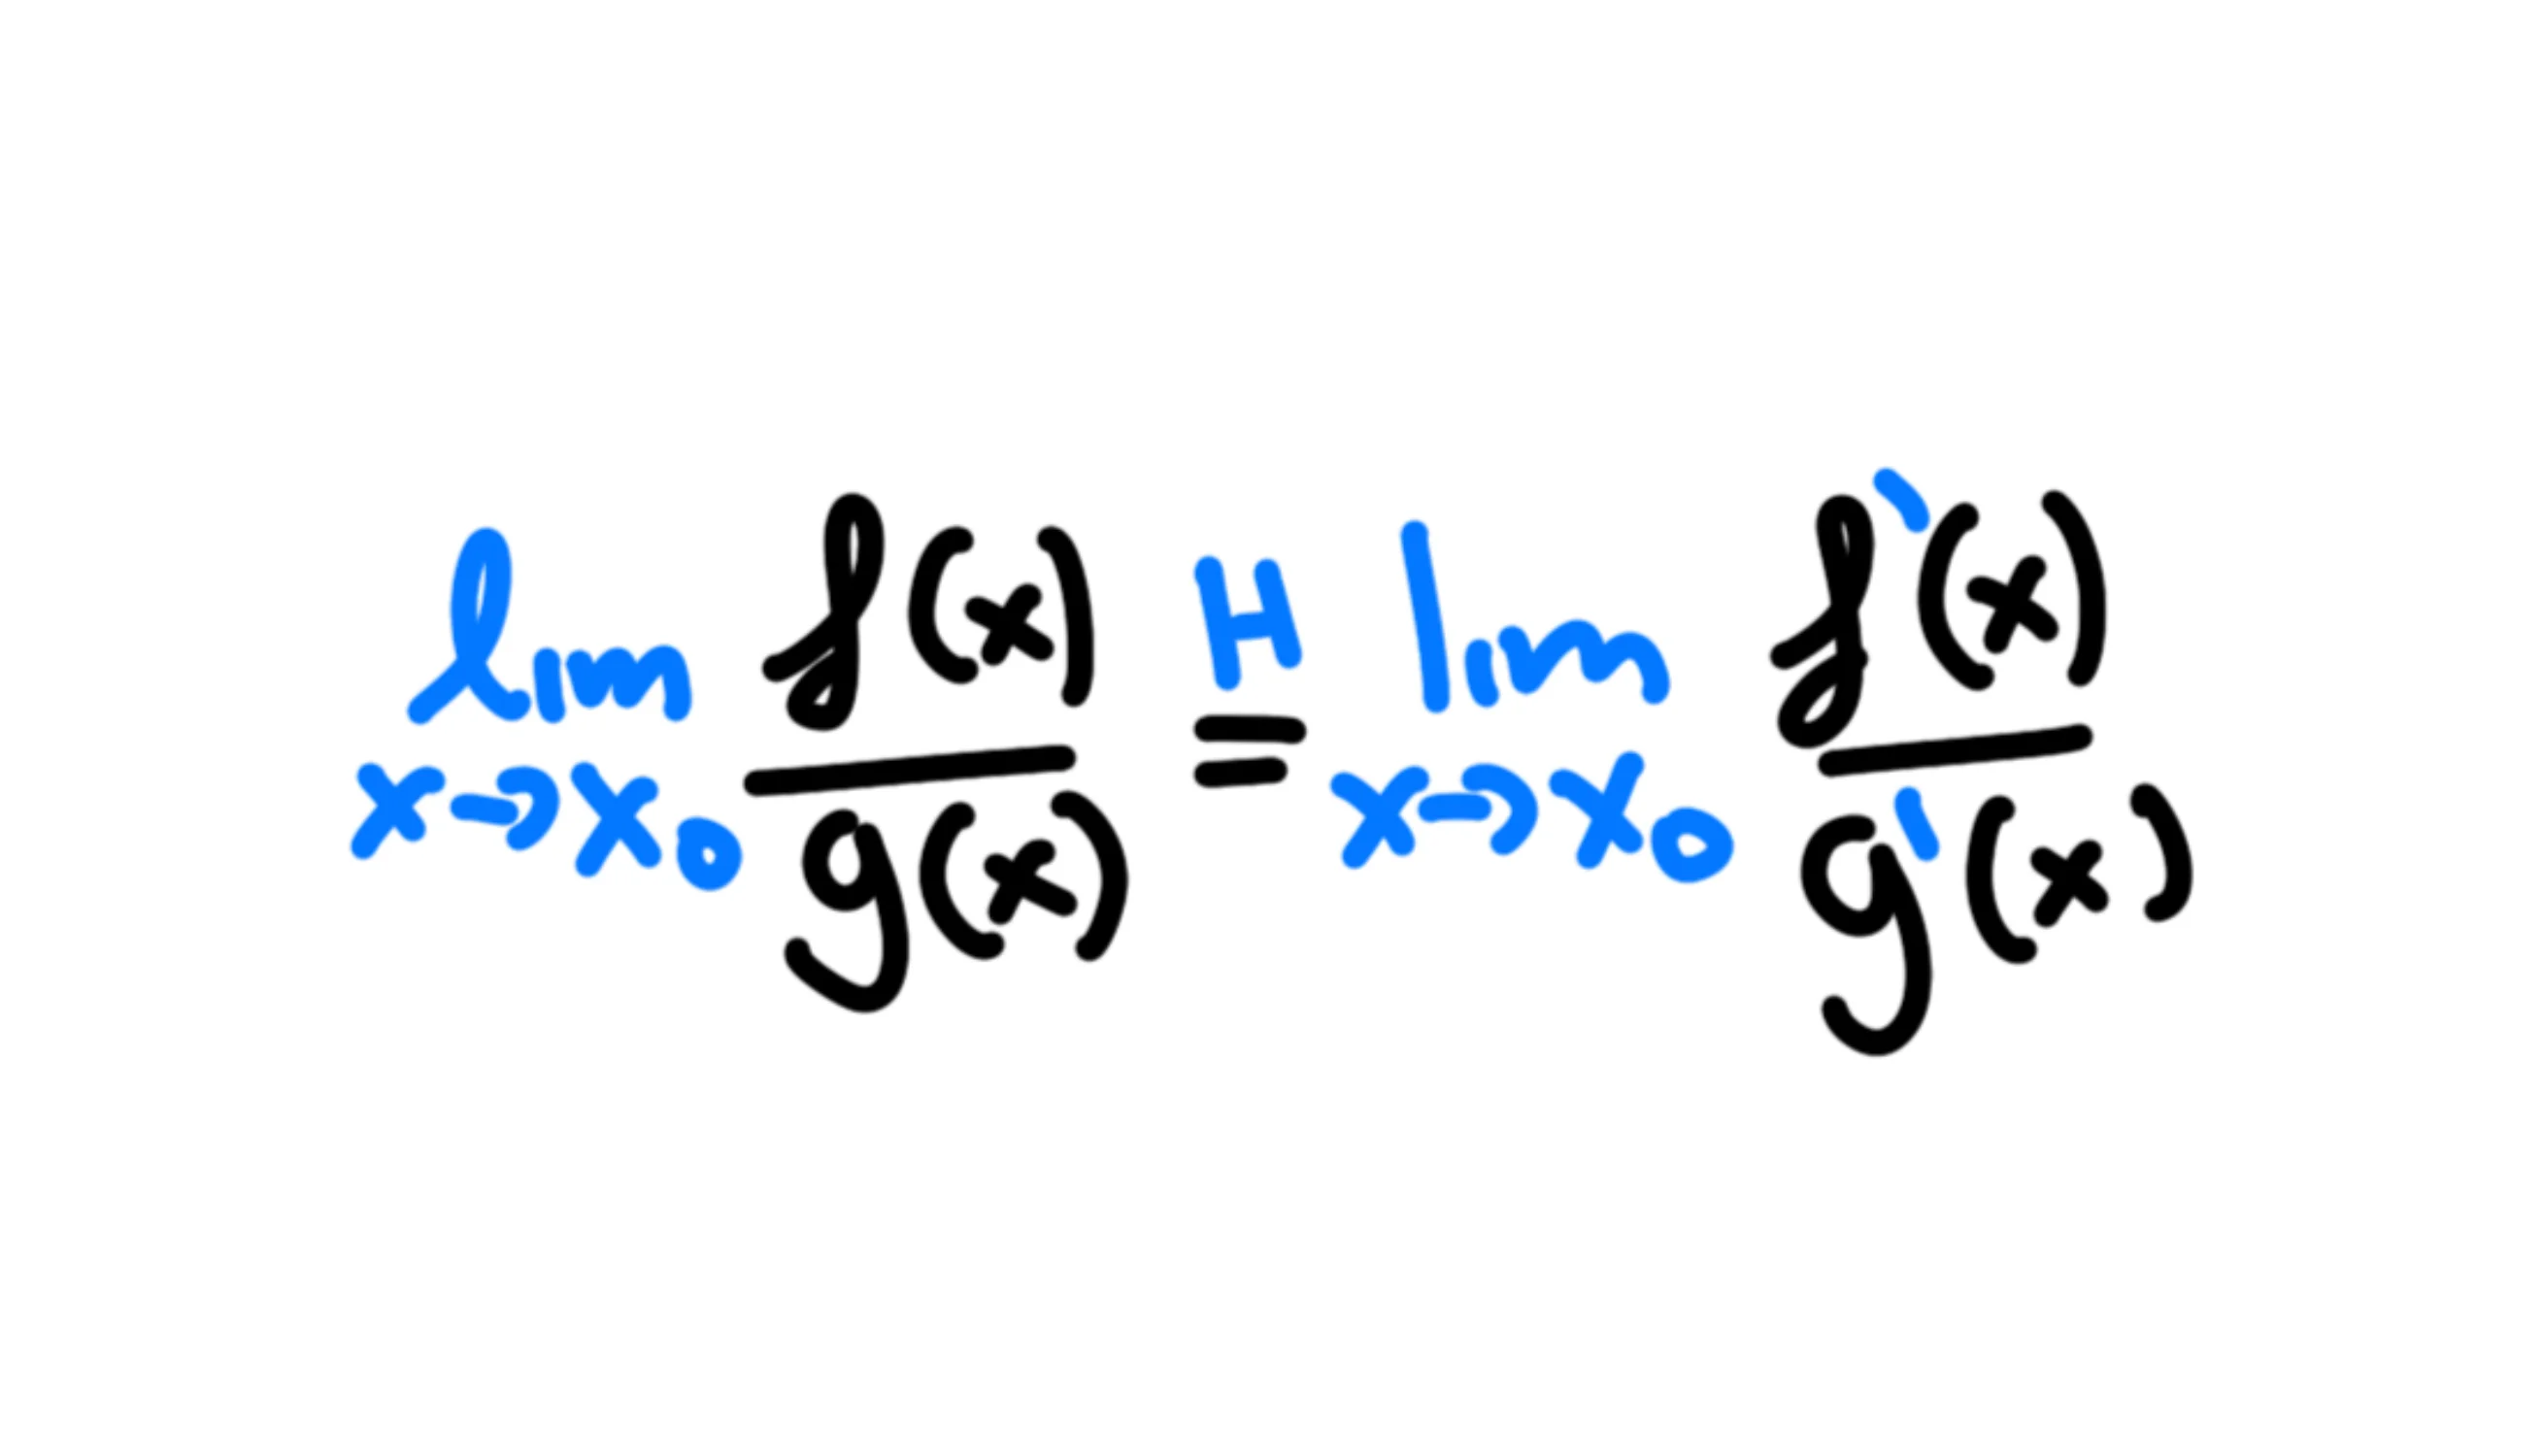 lim x→x₀ f(x)/g(x) =ᴴ lim x→x₀ f'(x)/g'(x)